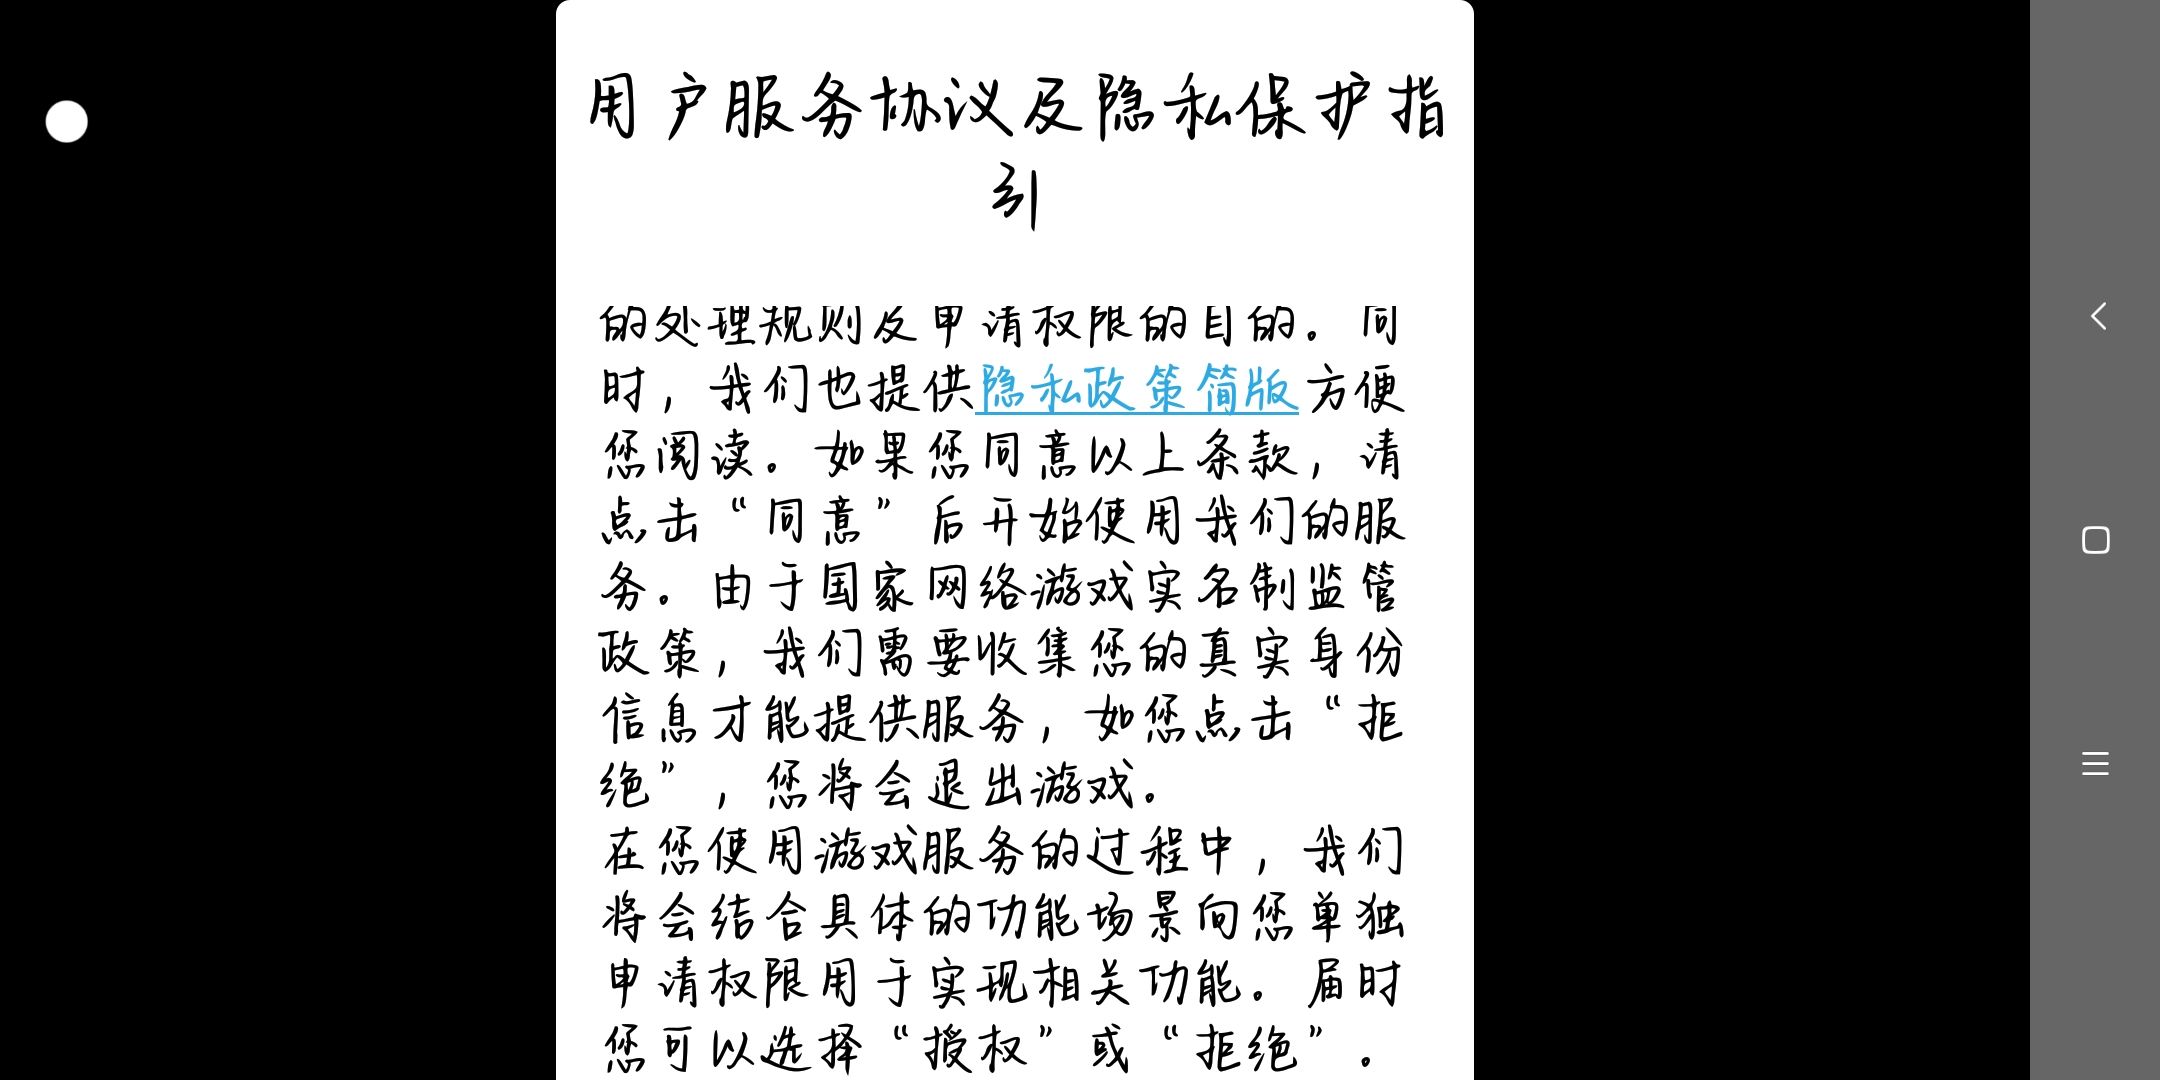 用户服务协议及隐私保护指
引
的处理规则及申请权限的目的。同
时，我们也提供隐私政策简版方便
您阅读。如果您同意以上条款，请
点击“同意”后开始使用我们的服
务。由于国家网络游戏实名制监管
政策，我们需要收集您的真实身份
信息才能提供服务，如您点击“拒
绝”，您将会退出游戏。
在您使用游戏服务的过程中，我们
将会结合具体的功能场景向您单独
申请权限用于实现相关功能。届时
您可以选择“授权”或“拒绝”。